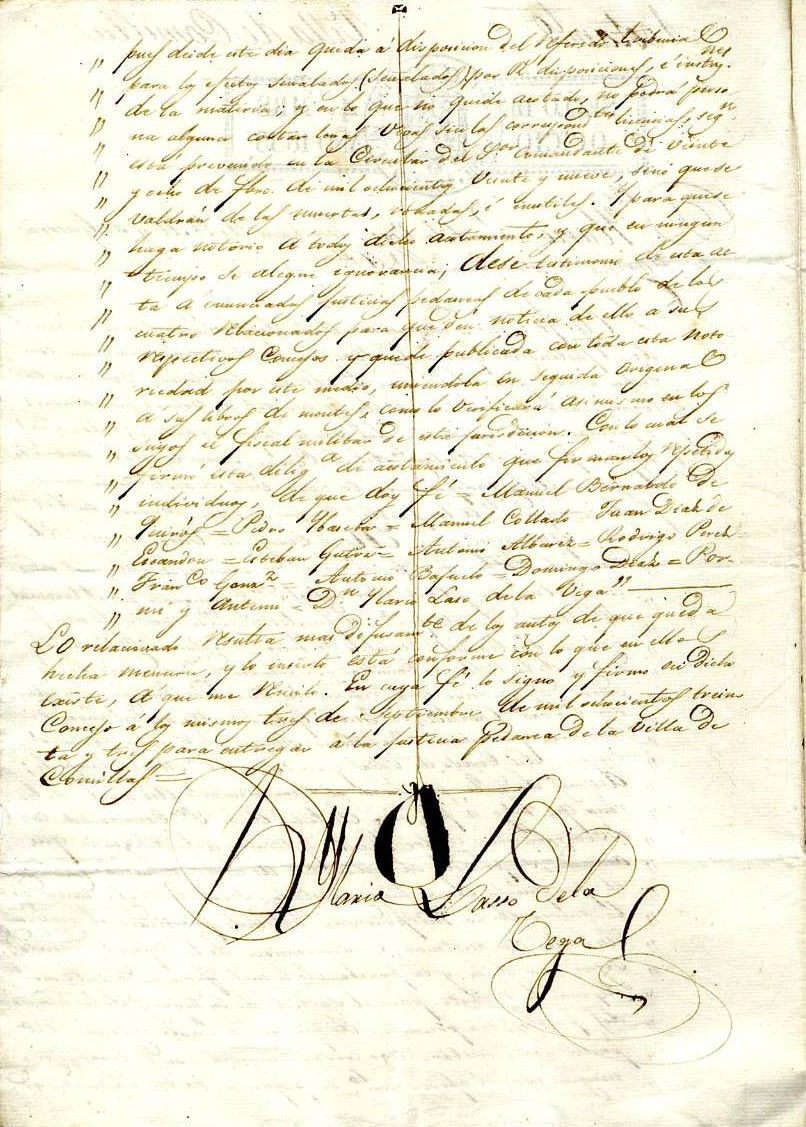 " pues desde este dia queda á disposicion del referido tribunal
" para los efectos señalados (señalados) por Rs. disposiciones, é instrnes.
" de la materia; y en lo que no quede acotado, no podrá perso-
" na alguna cortar leñas vivas sin las correspondtes. licencias, segn.
" está prevenido en la Circular del Sor. Comandante de veinte
" y ocho de de mil ochocientos veinte y nueve, sino que se
" valdrán de las muertas, rodadas, é inutiles. Y para que se
" haga notorio á todos dicho acotamiento, y que en ningun
" tiempo se alegue ignorancia; dese testimonio de esta ac-
" ta á enunciadas Justicias pedaneas de cada pueblo de los
" cuatro relacionados para que den noticia de ello a sus
" respectivos Concejos y quede publicada con toda esta noto-
" riedad por este medio, uniendola en seguida original
" á sus libros de montes, como lo verificará asi mismo en los
" suyos el fiscal militar de esta jurisdicion. Con lo cual se
" firmó esta diliga. de acotamiento que firman los repetidos
" individuos, de que doy fé = Manuel Bernardo de
" Quirós = Pedro = Manuel Collado = Juan Diaz de
" Escandon = Esteban Gutrrz = Antonio Albarez = Rodrigo Perez =
" Franco. Gonzz. = Antonio Bañuelo = Domingo Diaz = Por
" mi y Antemi = Dn. Ylario Laso de la Vega "
Lo relacionado resulta mas difusamte. de los autos de que queda
hecha mencion, y lo inserto está conforme con lo que en ellos
existe, á que me remito. En cuya fé lo signo y firmo en dicho
Concejo á los mismos tres de Septiembre de mil ochocientos trein-
ta y tres para entregar á la justicia Pedanea de la Villa de
Comillas =
Ylario Lasso de la
Vega